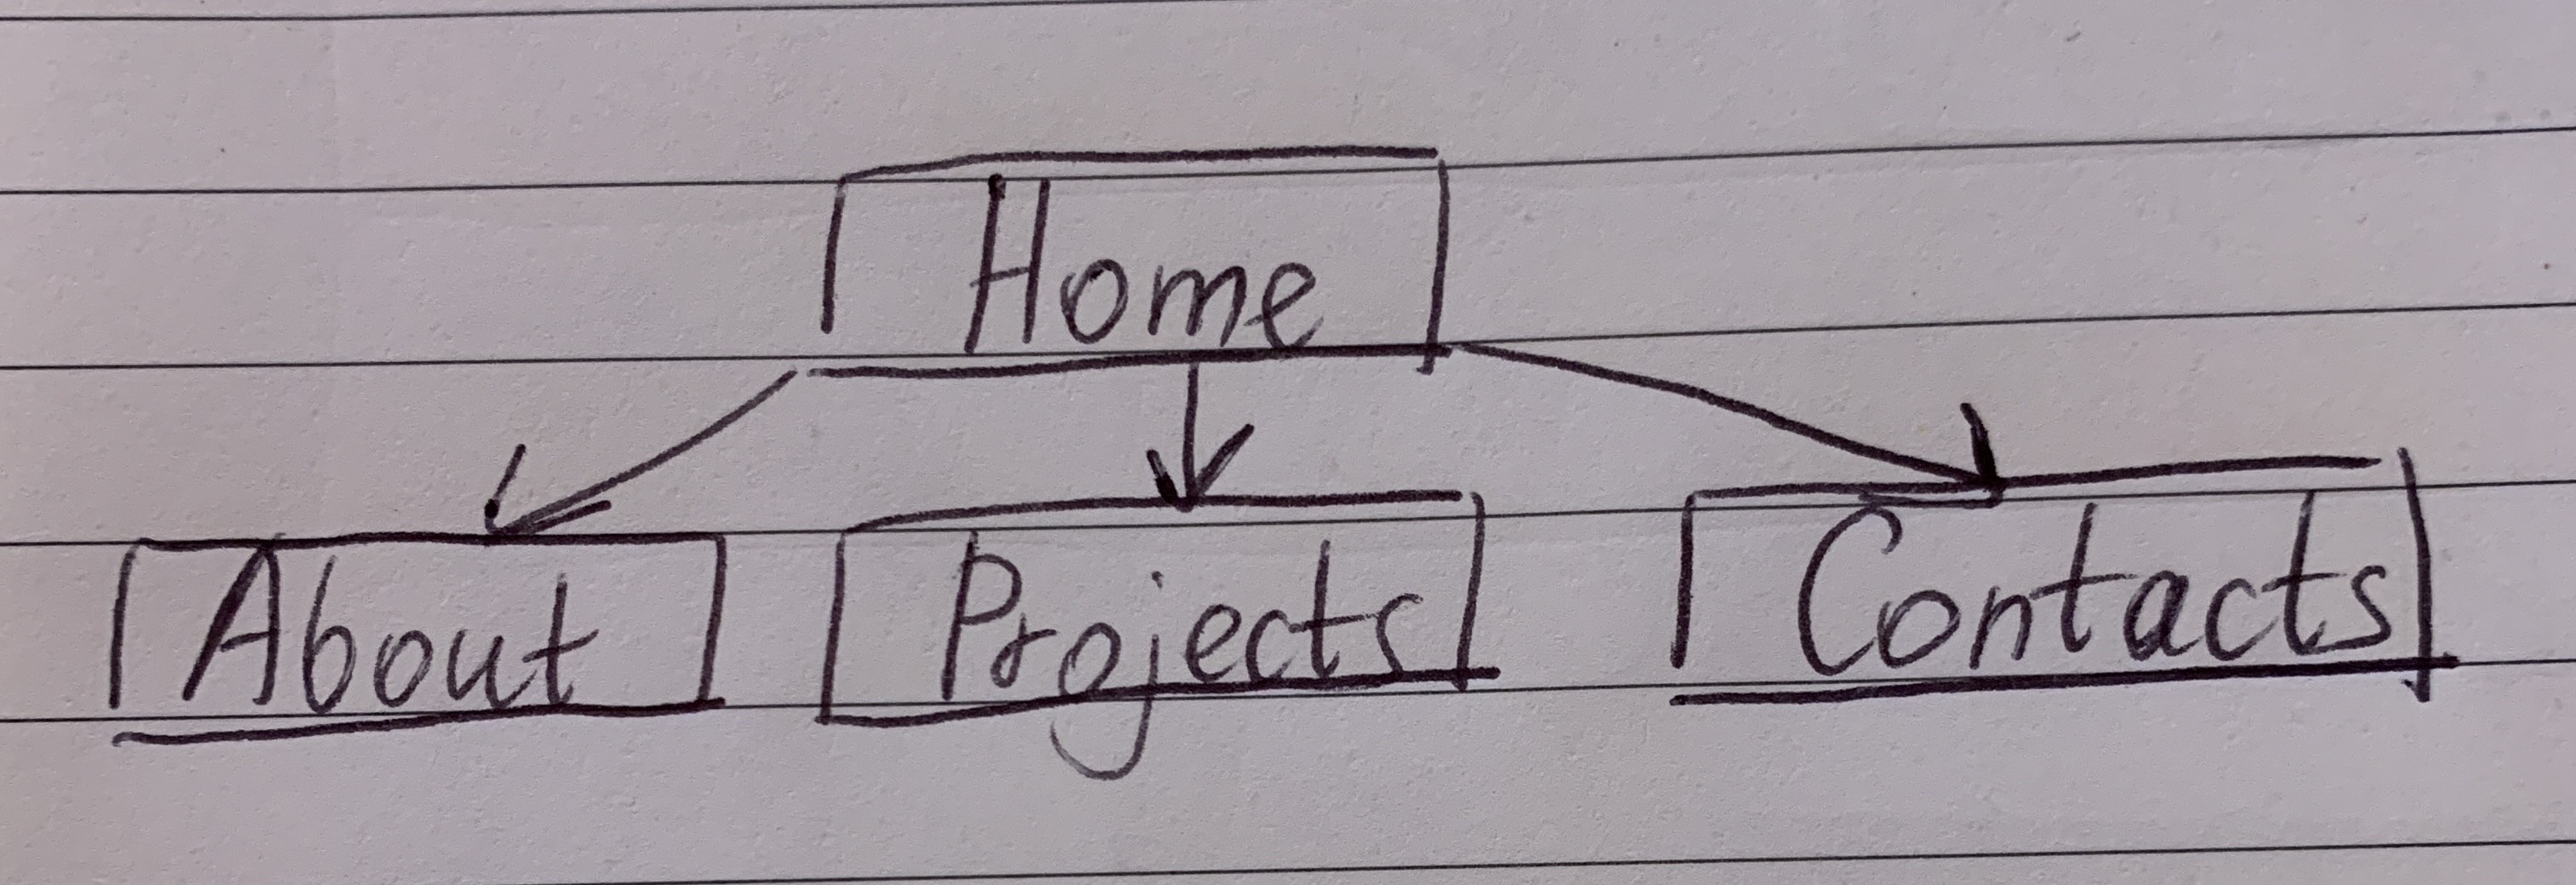 Home
About Projects Contacts